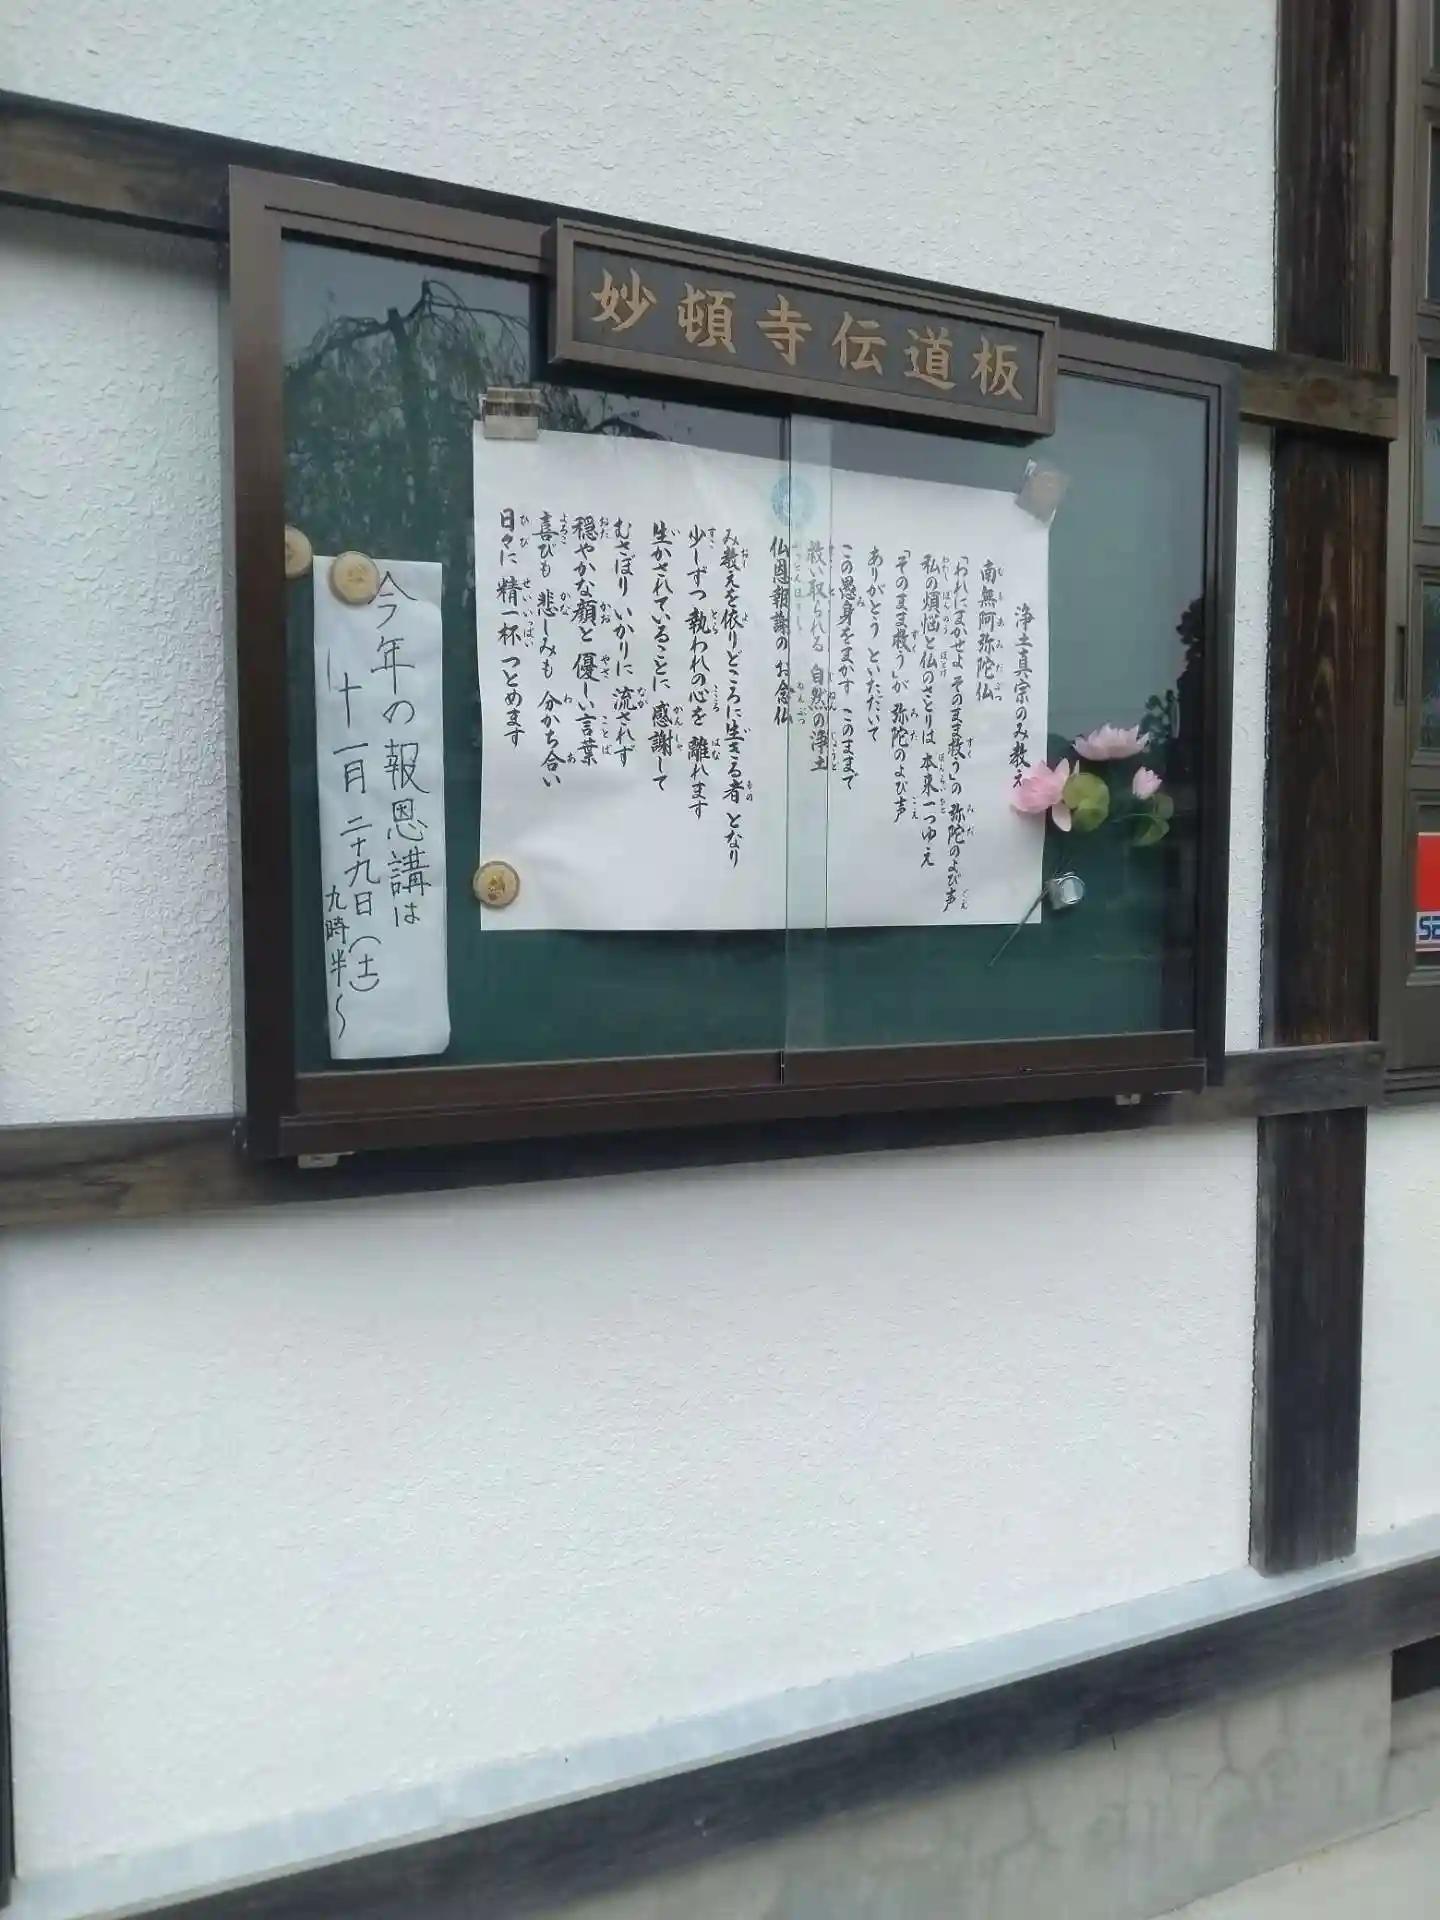 妙頓寺伝道板
浄土真宗のみ教え
南無阿弥陀仏
「われにまかせよ そのまま救う」の 弥陀のよび声
私の煩悩と仏のさとりは 本来一つゆえ
「そのまま救う」が 弥陀のよび声
ありがとう といただいて
この愚身をまかす このままで
救い取られる 自然の浄土
仏恩報謝の お念仏
み教えを依りどころに生きる者 となり
少しずつ 執われの心を 離れます
生かされていることに 感謝して
むさぼり いかりに 流されず
穏やかな顔と 優しい言葉
喜びも 悲しみも 分かち合い
日々に 精一杯 つとめます
今年の報恩講は
十一月二十九日（土）
九時半〜